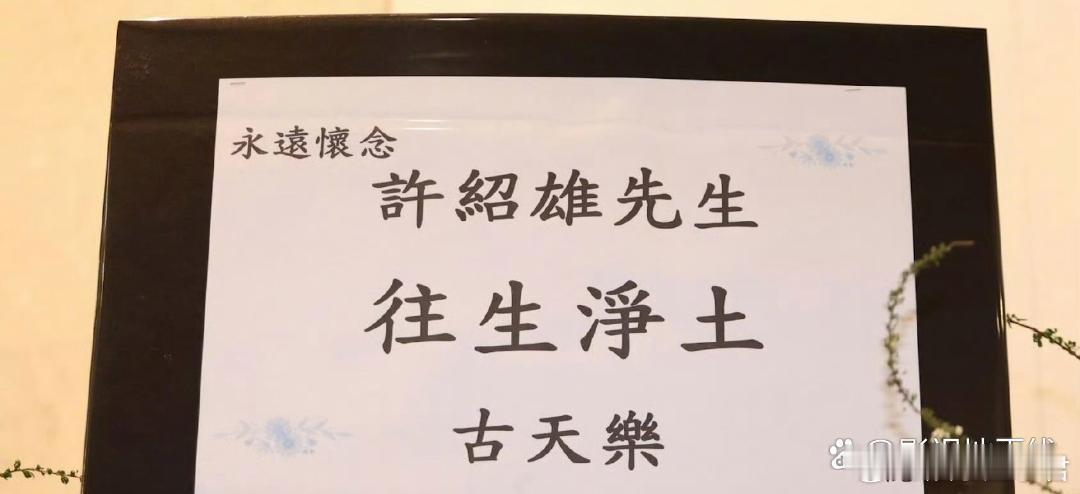 永遠懷念
許紹雄先生
往生淨土
古天樂